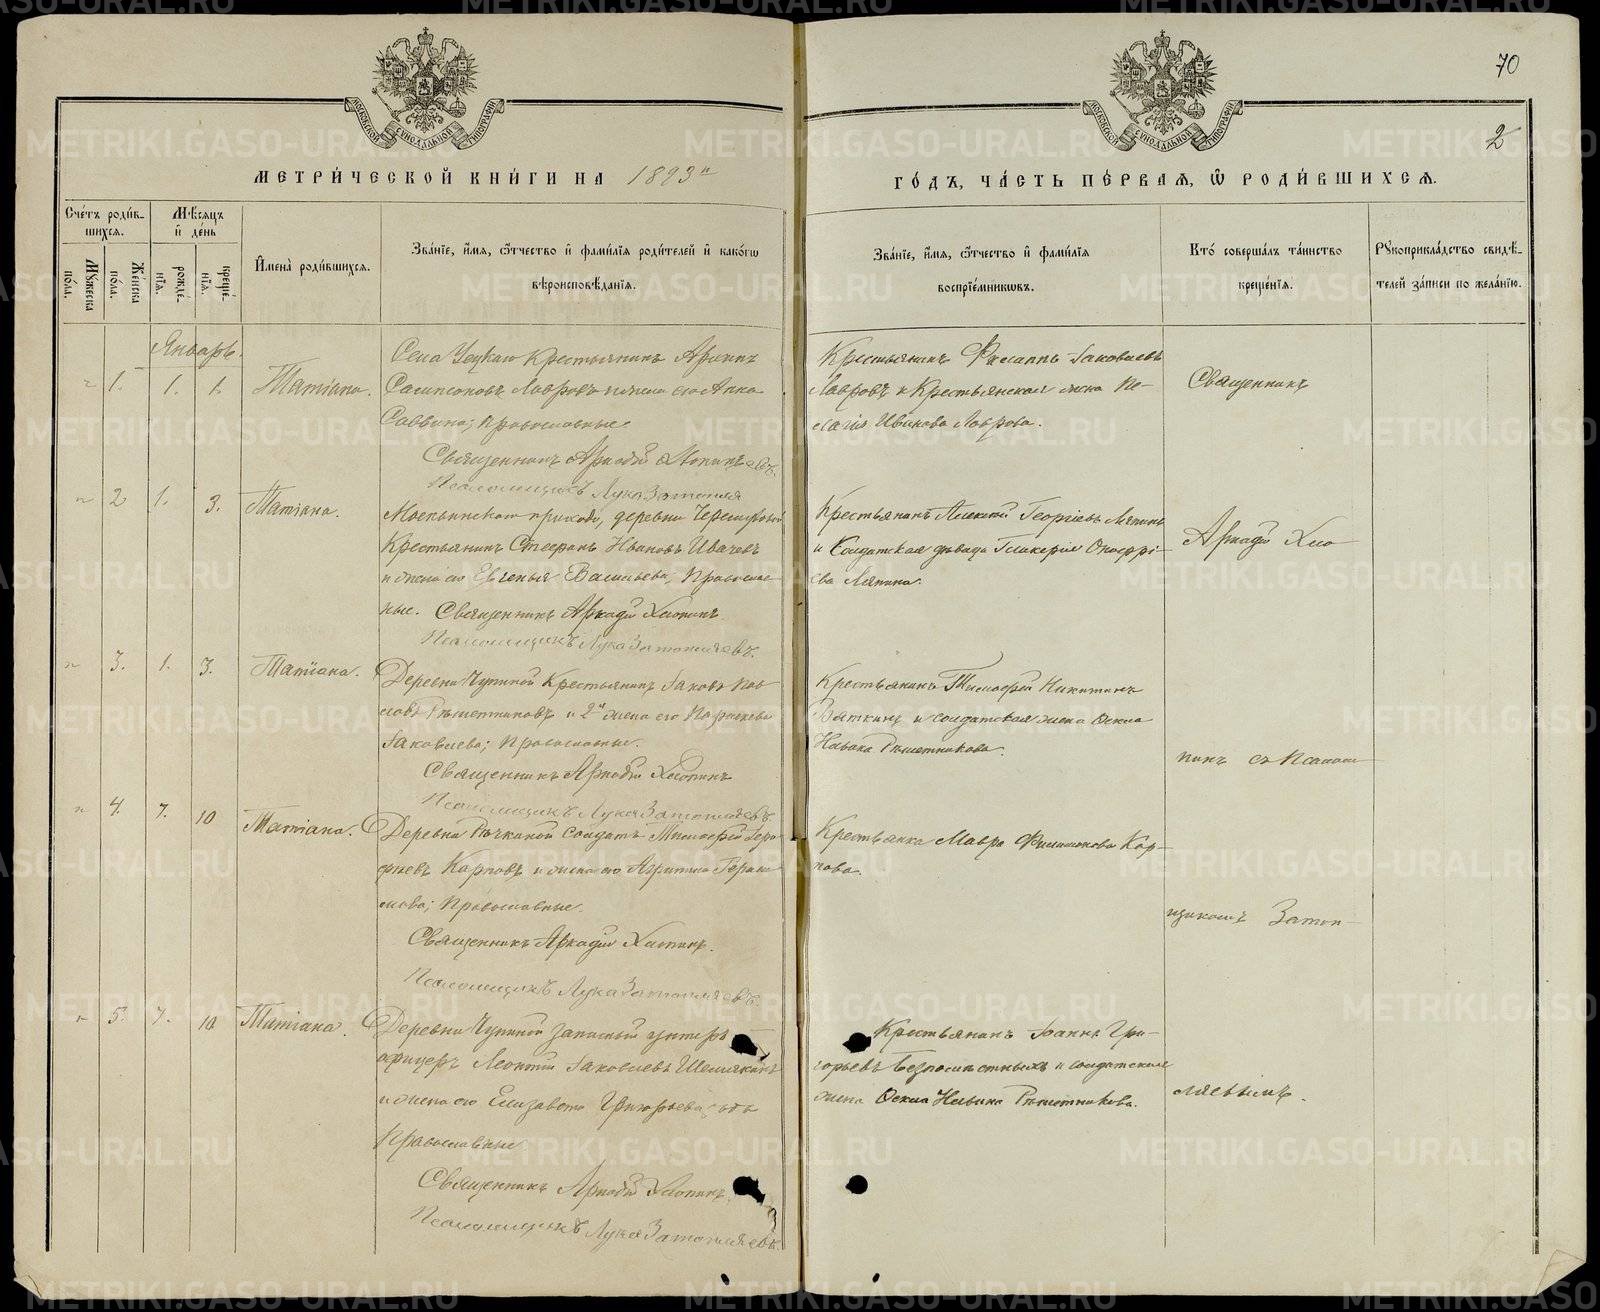 70
2
МОСКОВСКОЙ СѴНОДАЛЬНОЙ ТИПОГРАФІИ
МОСКОВСКОЙ СѴНОДАЛЬНОЙ ТИПОГРАФІИ
МЕТРИ́ЧЕСКОЙ КНИ́ГИ НА 1893 го
ГО́ДЪ, ЧА́СТЬ ПЕ́РВАЯ, Ѡ РОДИ́ВШИХСЯ.
Сче́тъ роди́в-
шихся.
Му́жеска по́ла.
Же́нска по́ла.
Мѣ́сяцъ
и҆ де́нь
рожде́нїя.
креще́нїя.
И҆мена̀ роди́вшихся.
Зва́нїе, и҆́мя, ѻ҆́тчество и҆ фами́лїя роди́телей и҆ како́гѡ
вѣроисповѣ́данїя.
Зва́нїе, и҆́мя, ѻ҆́тчество и҆ фами́лїя
воспрїе́мникѡвъ.
Кто̀ соверша́лъ та́инство
креще́нїя.
Рꙋкоприкла́дство свидѣ́-
телей за́писи по жела́нїю.
Январь.
1. 1. 1. Татіана.
Села Крестьянинъ
Лавровъ и жена его Анна
Саввина; Православные
Священникъ Аркадій Хлопинъ
Псаломщикъ Лука Затопляевъ.
Крестьянинъ Іаковлевъ
Лавровъ и Крестьянская жена Пе-
лагія Иванова Лаврова.
Священникъ
2 1. 3. Татіана.
прихода, деревни
Крестьянинъ Стефанъ Ивановъ Ивачевъ
и жена его Евгенья Васильева; Православ-
ные. Священникъ Аркадій Хлопинъ
Псаломщикъ Лука Затопляевъ.
Крестьянинъ Алексій Георгіевъ Ляпинъ
и Солдатская дѣвица Гликерія Онофрі-
ева Ляпина.
Аркадій Хло-
3. 1. 3. Татіана.
Деревни Чупиной Крестьянинъ Іаковъ Пав-
ловъ Рѣшетниковъ и 2я жена его Параскева
Іаковлева; Православные.
Священникъ Аркадій Хлопинъ
Псаломщикъ Лука Затопляевъ
Крестьянинъ Тимофей Никитинъ
Вяткинъ и солдатская жена Фекла
Ильина Рѣшетникова.
пинъ съ Псалом-
4. 7. 10 Татіана.
Деревни Ръчкиной Солдатъ Тимофей
Карповъ и жена его Агрипина Гераси-
мова; Православные.
Священникъ Аркадій Хлопинъ.
Псаломщикъ Лука Затопляевъ.
Крестьянка Мавра Филимонова Кар-
пова.
щикомъ Затоп-
5. 7. 10 Татіана.
Деревни Чупиной запасный унтеръ-
офицеръ Леонтій Іаковлевъ Шемякинъ
и жена его Елизавета Григорьева; оба
Православные
Священникъ Аркадій Хлопинъ.
Псаломщикъ Лука Затопляевъ.
Крестьянинъ Іоаннъ Гри-
горьевъ Безпомѣстныхъ и солдатская
жена Фекла Ильина Рѣшетникова.
ляевымъ.
METRIKI.GASO-URAL.RU